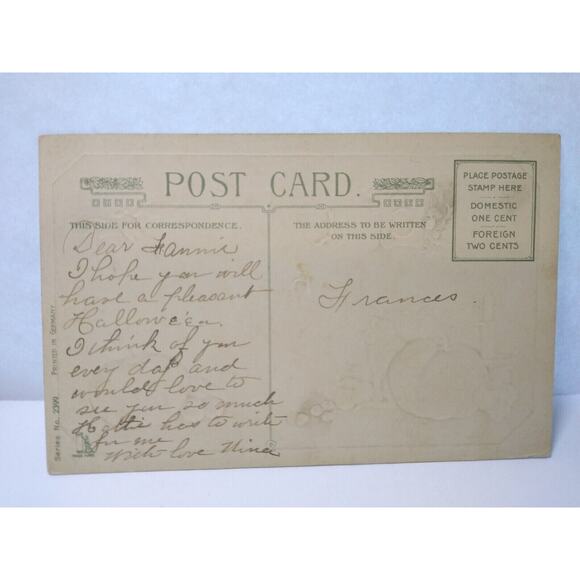 POST CARD.
PLACE POSTAGE
STAMP HERE
DOMESTIC
ONE CENT
FOREIGN
TWO CENTS
THIS SIDE FOR CORRESPONDENCE.
THE ADDRESS TO BE WRITTEN
ON THIS SIDE.
Dear Fannie
I hope you will
have a pleasant
Hallowe'en.
I think of you
every day and
would love to
see you so much
has to write
for me
With love Nina
Frances.
Series No. 2399. PRINTED IN GERMANY